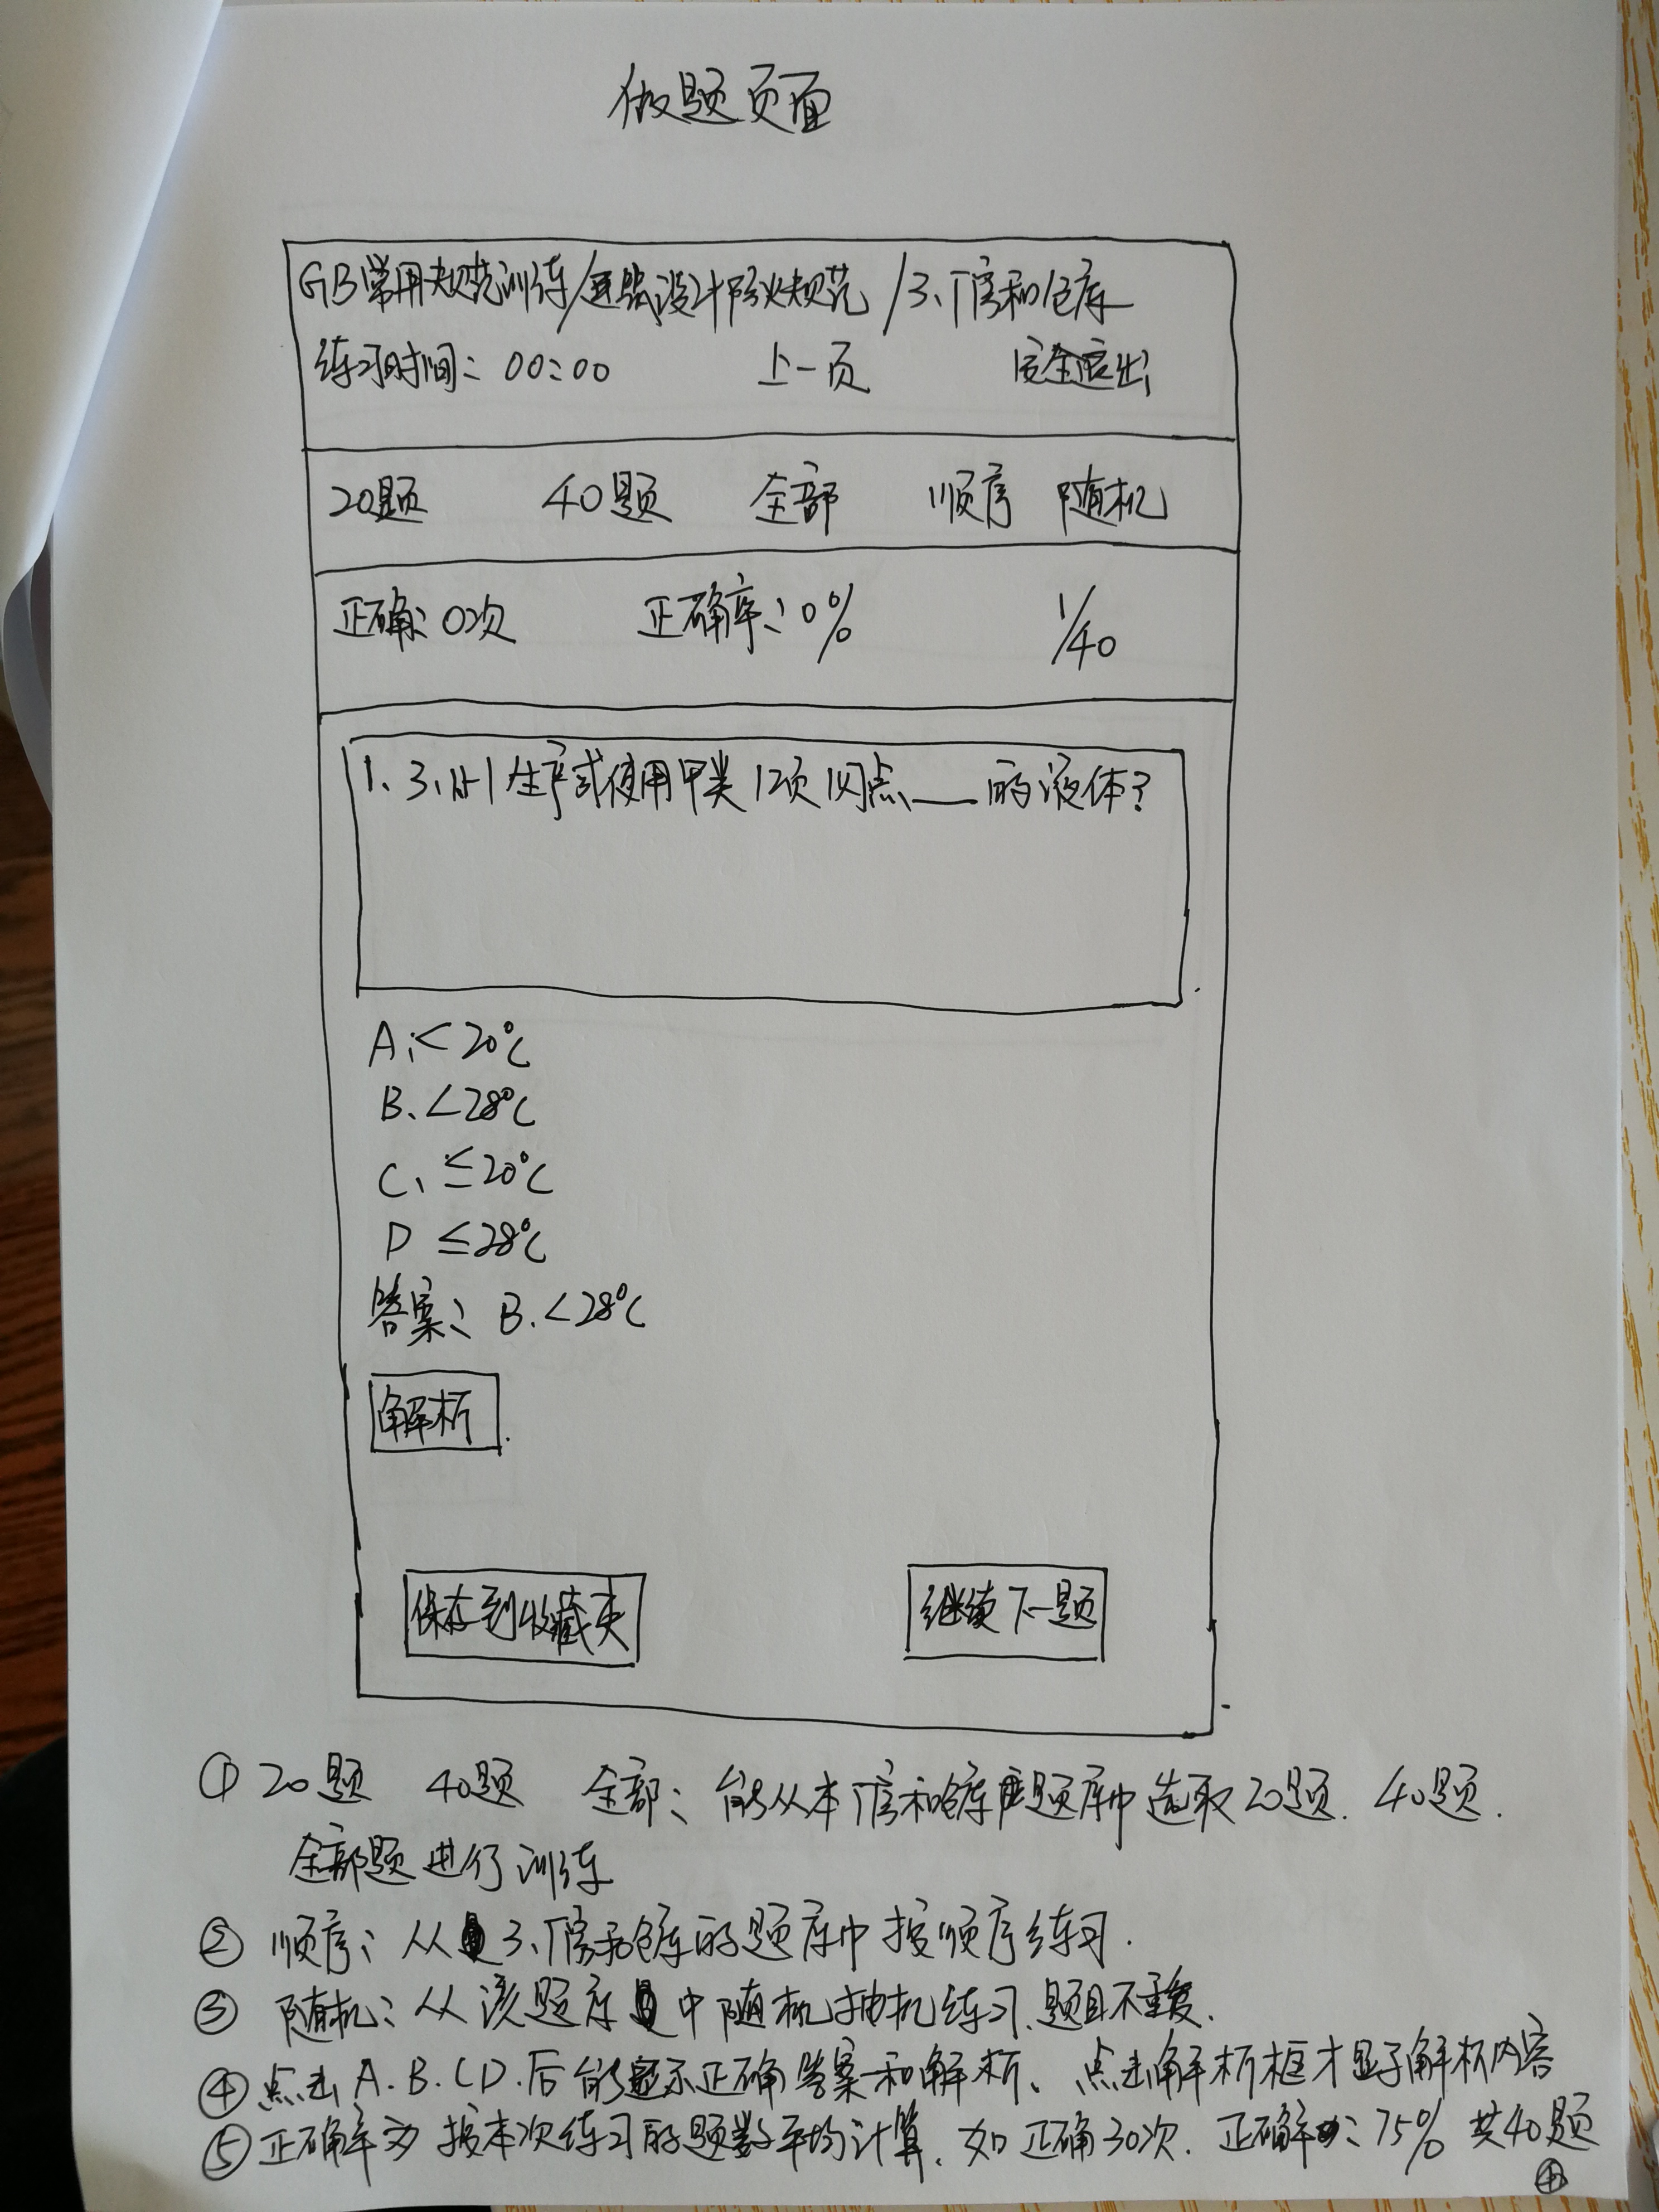 做题页面
GB常用规范训练/建筑设计防火规范/3、厂房和仓库
练习时间：00:00 上一页 安全退出
20题 40题 全部 顺序 随机
正确：0次 正确率：0% 1/40
1、3.1.1 生产或使用甲类1项闪点___的液体？
A、<20℃
B、<28℃
C、≤20℃
D ≤28℃
答案：B.<28℃
解析
保存到收藏夹 继续下一题
① 20题 40题 全部：能从本厂房和仓库题库中选取20题．40题．
全部题进行训练
② 顺序：从3、厂房和仓库的题库中按顺序练习．
③ 随机：从该题库中随机抽机练习．题目不重复．
④ 点击A.B.C.D.后能显示正确答案和解析、点击解析框才显示解析内容
⑤ 正确率为按本次练习的题数平均计算．如正确30次．正确率为：75% 共40题
④